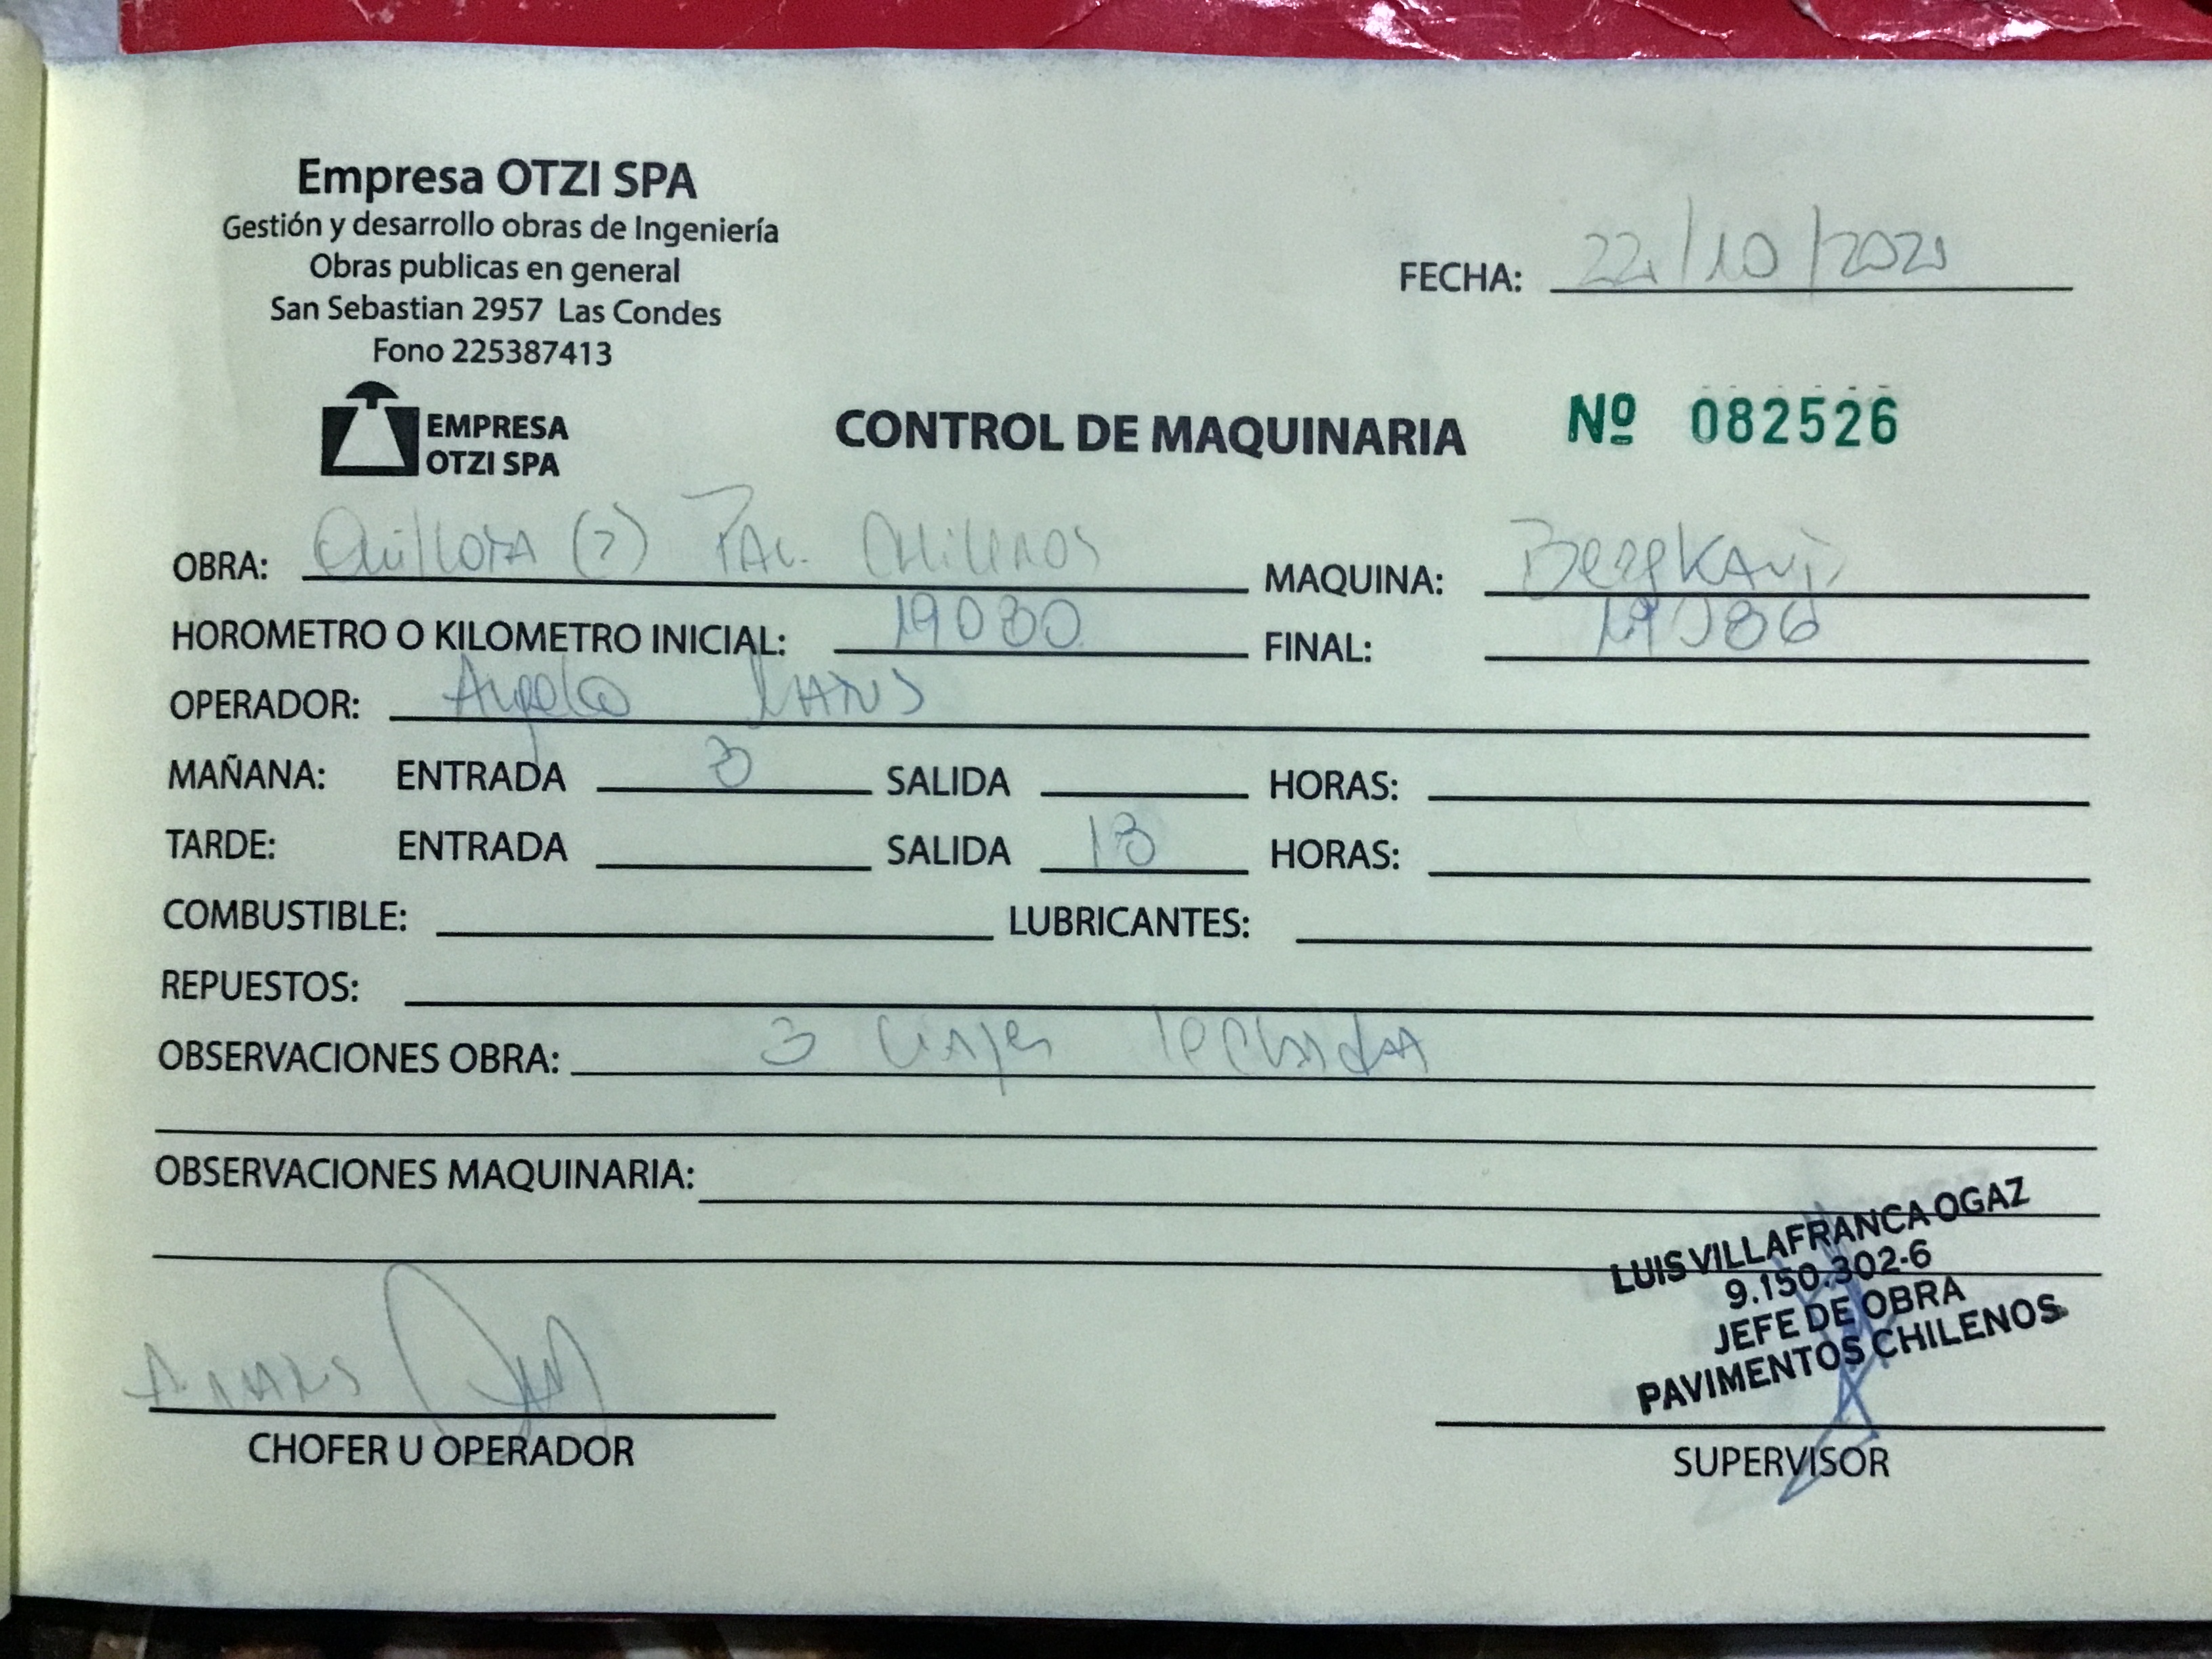 Empresa OTZI SPA
Gestión y desarrollo obras de Ingeniería
Obras publicas en general
San Sebastian 2957 Las Condes
Fono 225387413
EMPRESA
OTZI SPA
FECHA: 22/10/2021
CONTROL DE MAQUINARIA Nº 082526
OBRA: Quillota (2) PAV. CHilENOS MAQUINA:
HOROMETRO O KILOMETRO INICIAL: 19080 FINAL: 19086
OPERADOR: Angelo
MAÑANA: ENTRADA 8 SALIDA HORAS:
TARDE: ENTRADA SALIDA 18 HORAS:
COMBUSTIBLE: LUBRICANTES:
REPUESTOS:
OBSERVACIONES OBRA: 3 viajes lechada
OBSERVACIONES MAQUINARIA:
LUIS VILLAFRANCA OGAZ
9.150.302-6
JEFE DE OBRA
PAVIMENTOS CHILENOS
CHOFER U OPERADOR
SUPERVISOR